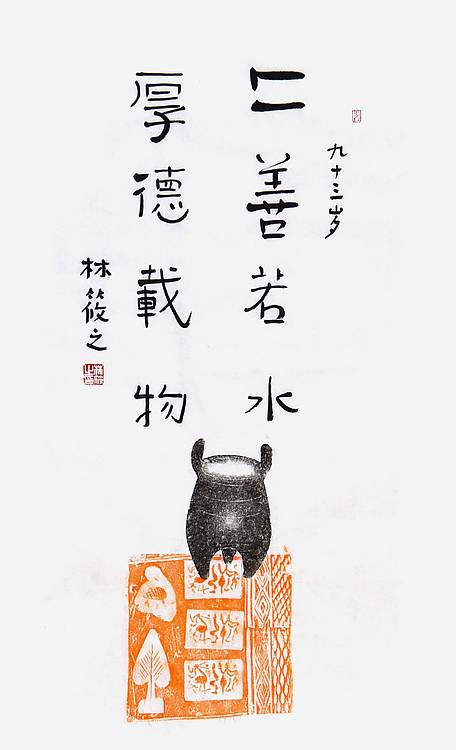 九十三岁
上善若水
厚德載物
林筱之